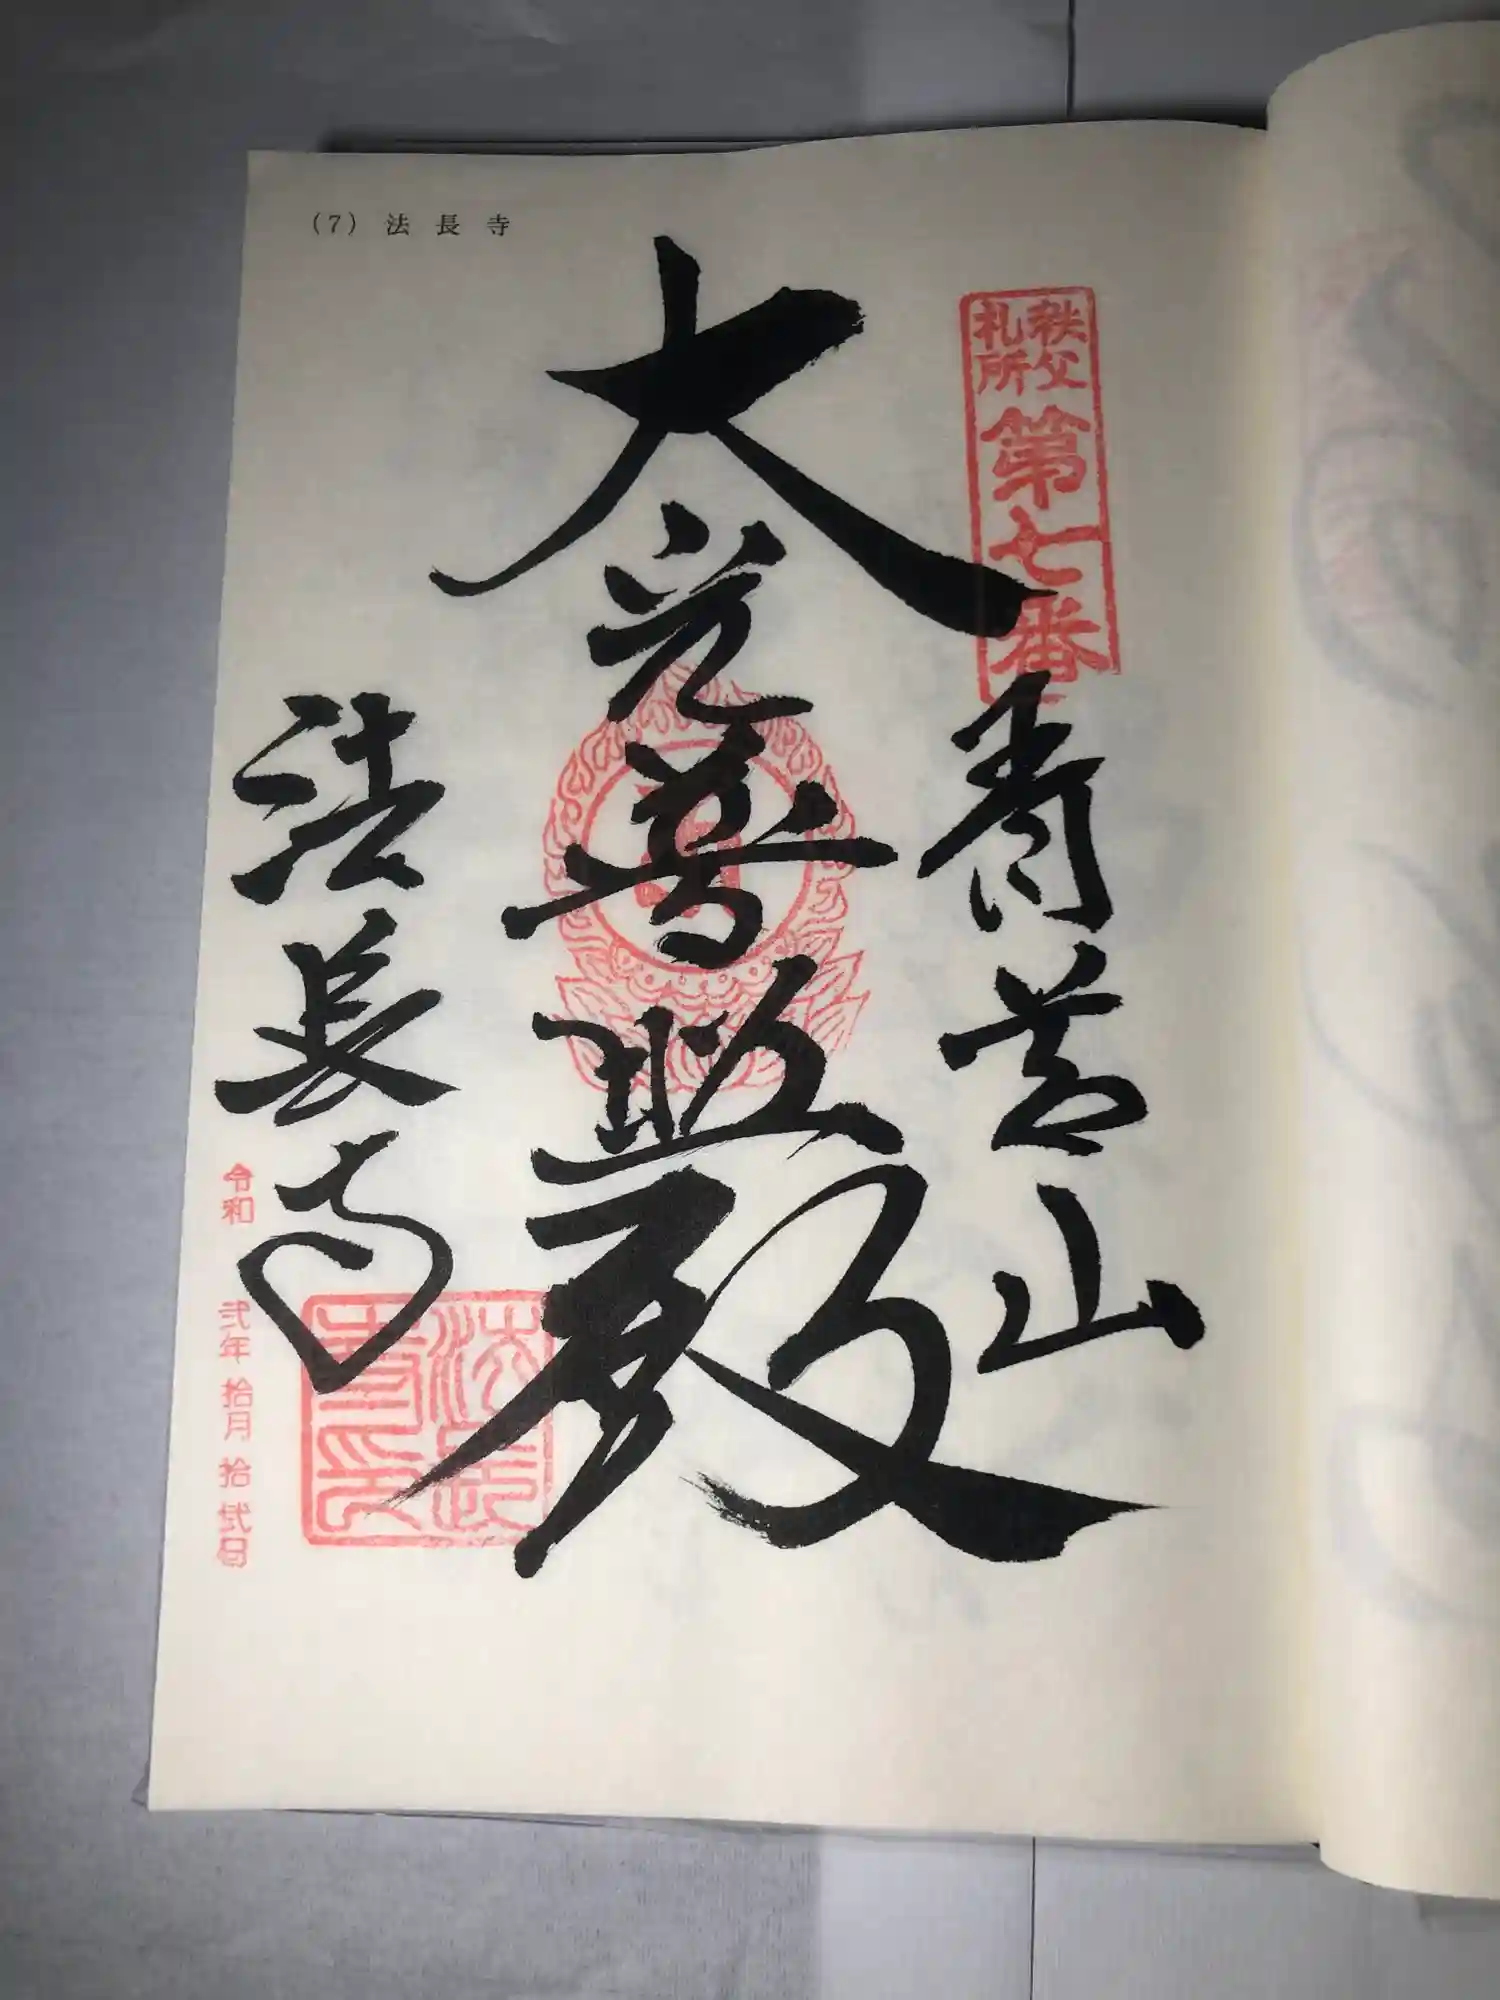 (7) 法長寺
秩父
札所
第七番
青苔山
大光普照殿
法長寺
法長
寺印
令和 弐年 拾月 拾弐日